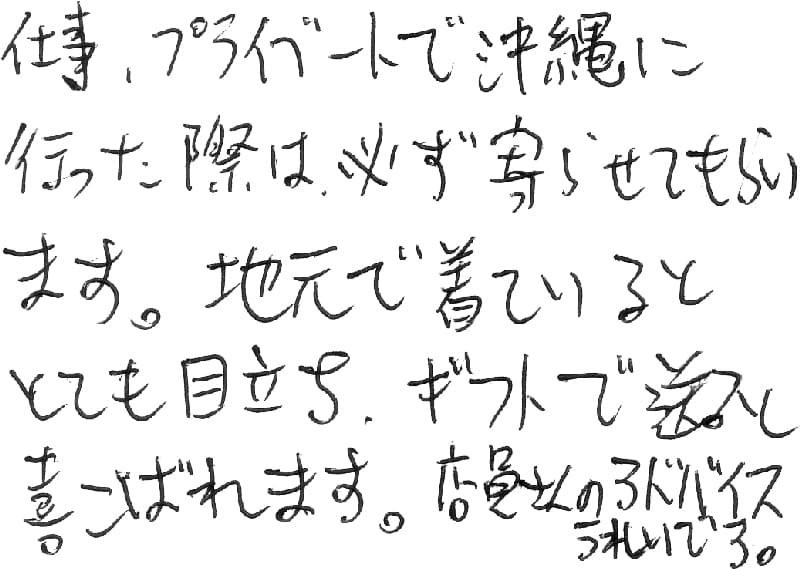 仕事、プライベートで沖縄に
行った際は、必ず寄らせてもらい
ます。地元で着ていると
とても目立ち、ギフトで送ると
喜こばれます。店員さんのアドバイス
うれしいです。